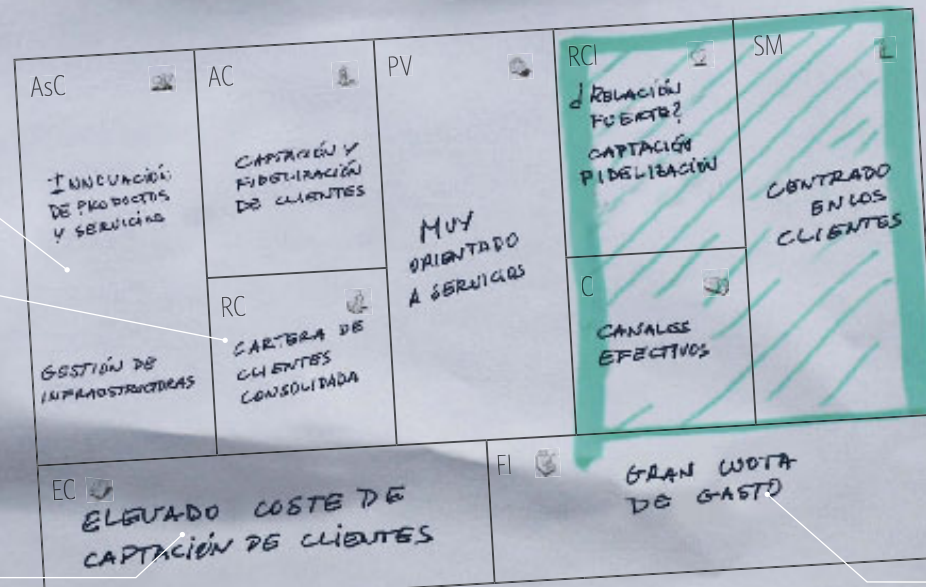 AsC
INNOVACIÓN
DE PRODUCTOS
Y SERVICIOS
GESTIÓN DE
INFRAESTRUCTURAS
AC
CAPTACIÓN Y
FIDELIZACIÓN
DE CLIENTES
RC
CARTERA DE
CLIENTES
CONSOLIDADA
PV
MUY
ORIENTADO
A SERVICIOS
RCl
¿RELACIÓN
FUERTE?
CAPTACIÓN
FIDELIZACIÓN
C
CANALES
EFECTIVOS
SM
CENTRADO
EN LOS
CLIENTES
EC
ELEVADO COSTE DE
CAPTACIÓN DE CLIENTES
FI
GRAN CUOTA
DE GASTO